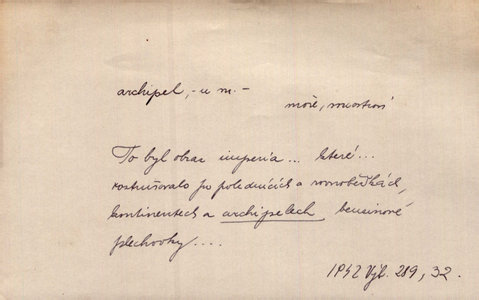 archipel, -u m. -
moře, mostroví
To byl obraz imperia... které...
rostrušovalo po polednících a rovnoběžkách,
kontinentech a archipelech benzinové
plechovky....
1942 Výb. 289, 32.